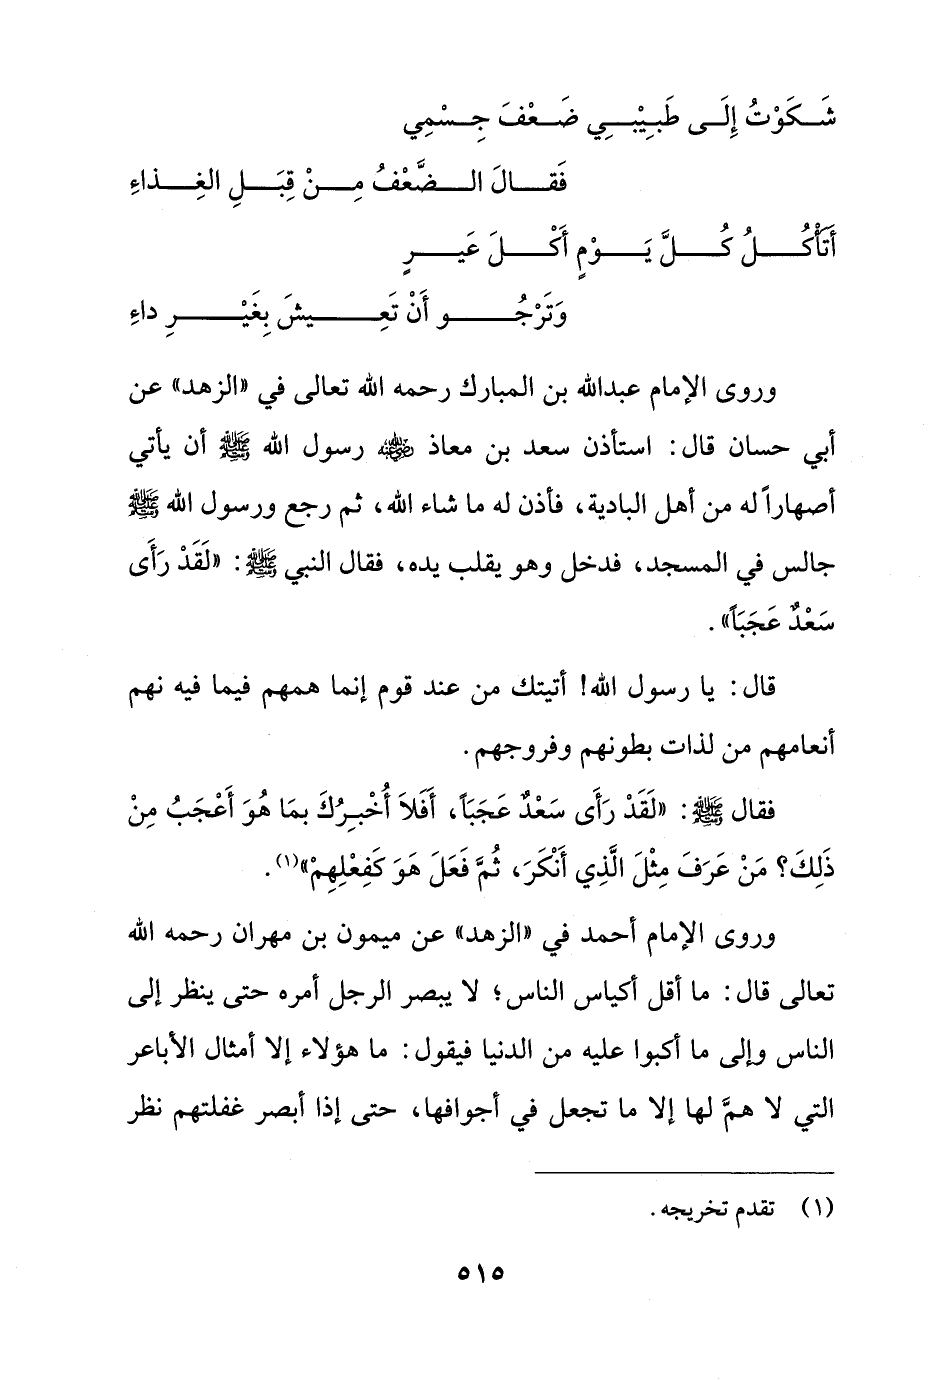 شَكَوْتُ إِلَى طَبِيْبِي ضَعْفَ جِسْمِي
فَقَالَ الضَّعْفُ مِنْ قِبَلِ الغِذاءِ
أَتَأْكُلُ كُلَّ يَوْمٍ أَكْلَ عَيرٍ
وَتَرْجُو أَنْ تَعِيشَ بِغَيْرِ داءِ
وروى الإمام عبدالله بن المبارك رحمه الله تعالى في «الزهد» عن
أبي حسان قال: استأذن سعد بن معاذ رضي الله عنه رسول الله ﷺ أن يأتي
أصهاراً له من أهل البادية، فأذن له ما شاء الله، ثم رجع ورسول الله ﷺ
جالس في المسجد، فدخل وهو يقلب يده، فقال النبي ﷺ: «لَقَدْ رَأَى
سَعْدٌ عَجَبَاً».
قال: يا رسول الله! أتيتك من عند قوم إنما همهم فيما فيه نهم
أنعامهم من لذات بطونهم وفروجهم.
فقال ﷺ: «لَقَدْ رَأَى سَعْدٌ عَجَبَاً، أَفَلاَ أُخْبِرُكَ بمَا هُوَ أَعْجَبُ مِنْ
ذَلِكَ؟ مَنْ عَرَفَ مِثْلَ الَّذِي أَنْكَرَ، ثُمَّ فَعَلَ هَوَ كَفِعْلِهِمْ»(١).
وروى الإمام أحمد في «الزهد» عن ميمون بن مهران رحمه الله
تعالى قال: ما أقل أكياس الناس؛ لا يبصر الرجل أمره حتى ينظر إلى
الناس وإلى ما أكبوا عليه من الدنيا فيقول: ما هؤلاء إلا أمثال الأباعر
التي لا همَّ لها إلا ما تجعل في أجوافها، حتى إذا أبصر غفلتهم نظر
(١) تقدم تخريجه.
٥١٥